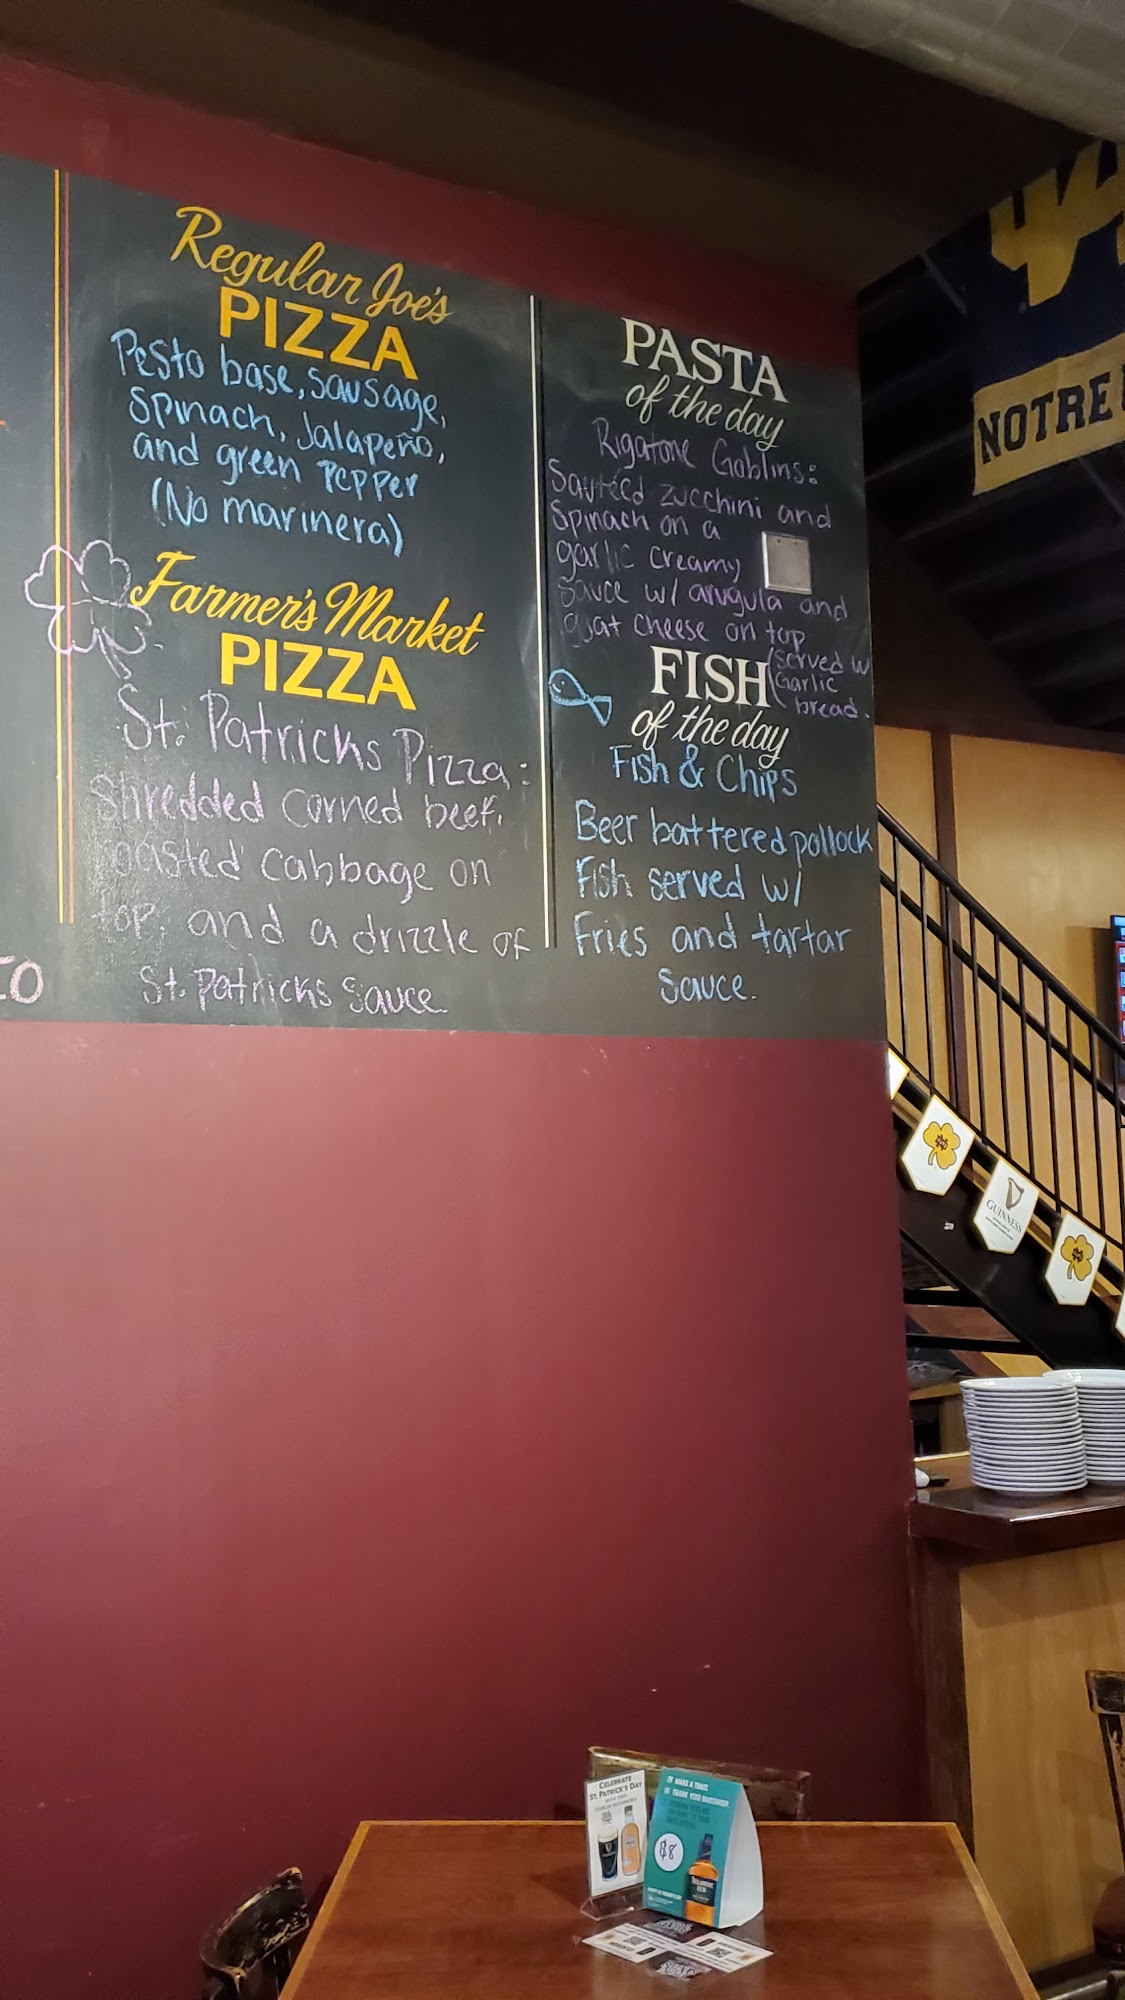 Regular Joe's
PIZZA
Pesto base, sausage,
Spinach, Jalapeño,
and green Pepper
(No marinera)
Farmer's Market
PIZZA
St. Patricks Pizza:
Shredded Corned beef,
roasted cabbage on
top, and a drizzle of
St. Patricks Sauce
PASTA
of the day
Rigatone Goblins:
Sautéed zucchini and
Spinach on a
garlic creamy
Sauce w/ arugula and
goat cheese on top
(Served w/
Garlic
bread.
FISH
of the day
Fish & Chips
Beer battered pollock
Fish served w/
Fries and tartar
Sauce.
NOTRE
GUINNESS
CELEBRATE
ST. PATRICK'S DAY
MAKE A TOAST
THANK YOUR BARTENDER
$8